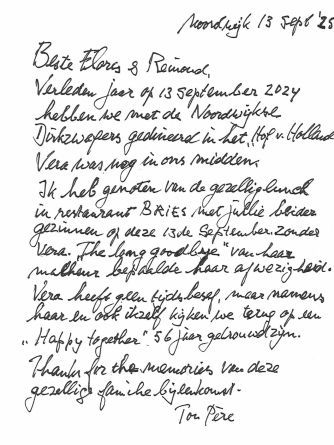 Noordwijk 13 sept '25
Beste Flores & Reinoud,
Verleden jaar op 13 september 2024
hebben we met de Noordwijkse
Dirkzwagers gedineerd in het "Hof v. Holland
Vera was nog in ons midden.
Ik heb genoten van de gezellig lunch
in restaurant BRIES met jullie beider
gezinnen op deze 13de September. zonder
Vera. "The long goodbye" van haar
malheur bepaalde haar afwezigheid.
Vera heeft geen tijdsbesef, maar namens
haar en ook ikzelf kijken we terug op een
"Happy together". 56 jaar getrouwd zijn.
Thanks for the memories van deze
gezellige familie bijeenkomst.
Ton Père